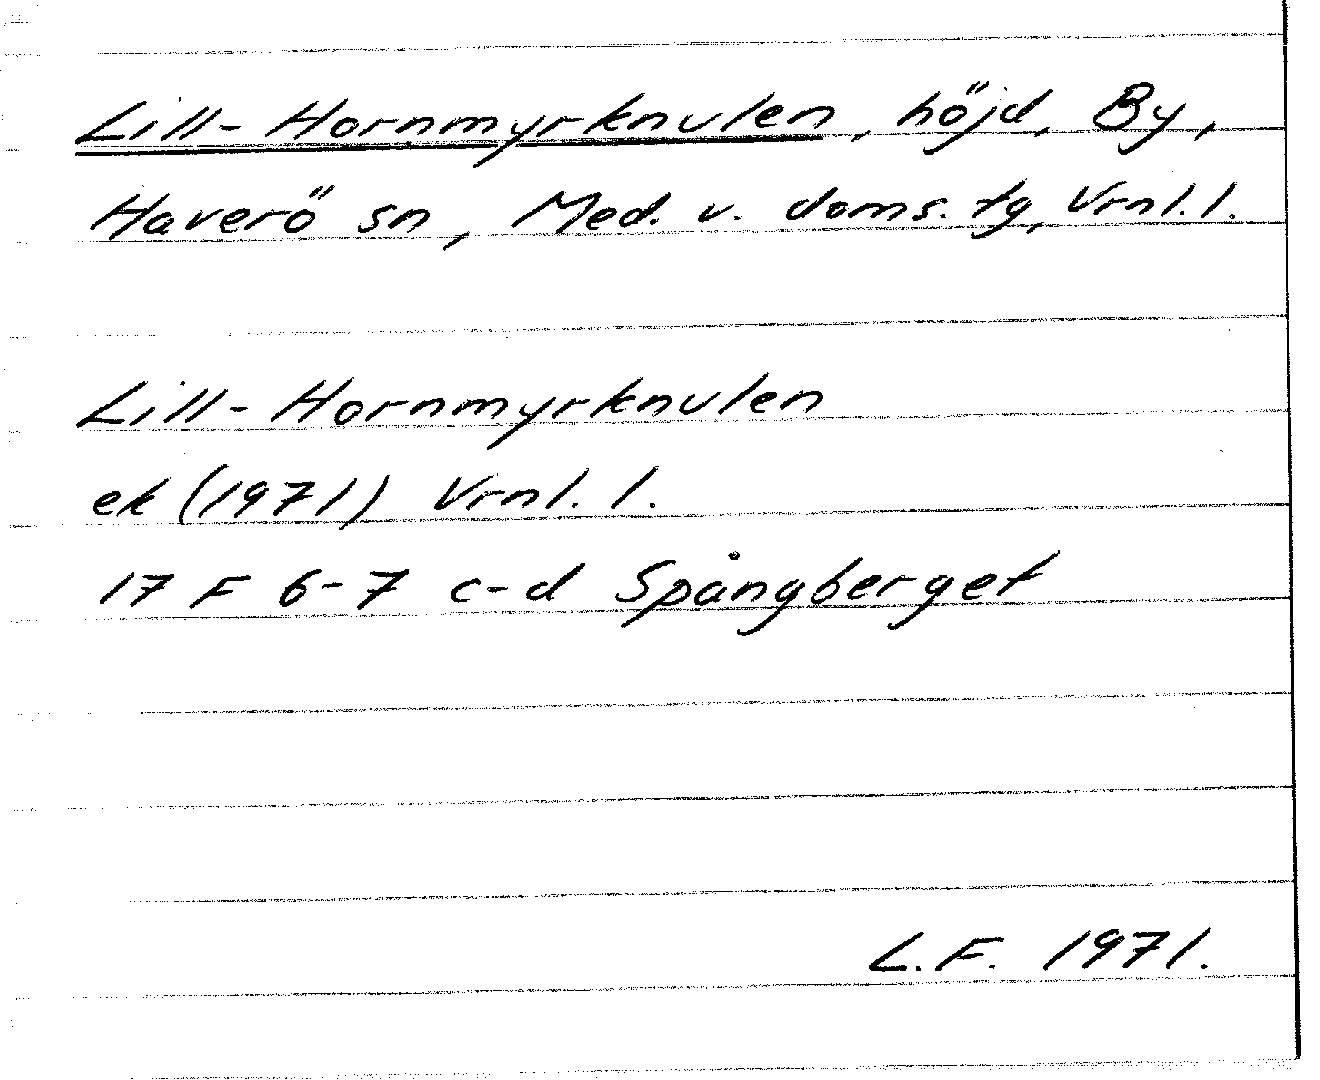 Lill-Hornmyrknulen, höjd, By,
Haverö sn, Med. v. doms. tg, Vrnl. l.
Lill-Hornmyrknulen
ek (1971) Vrnl. l.
17 F 6-7 c-d Spångberget
L.F. 1971.